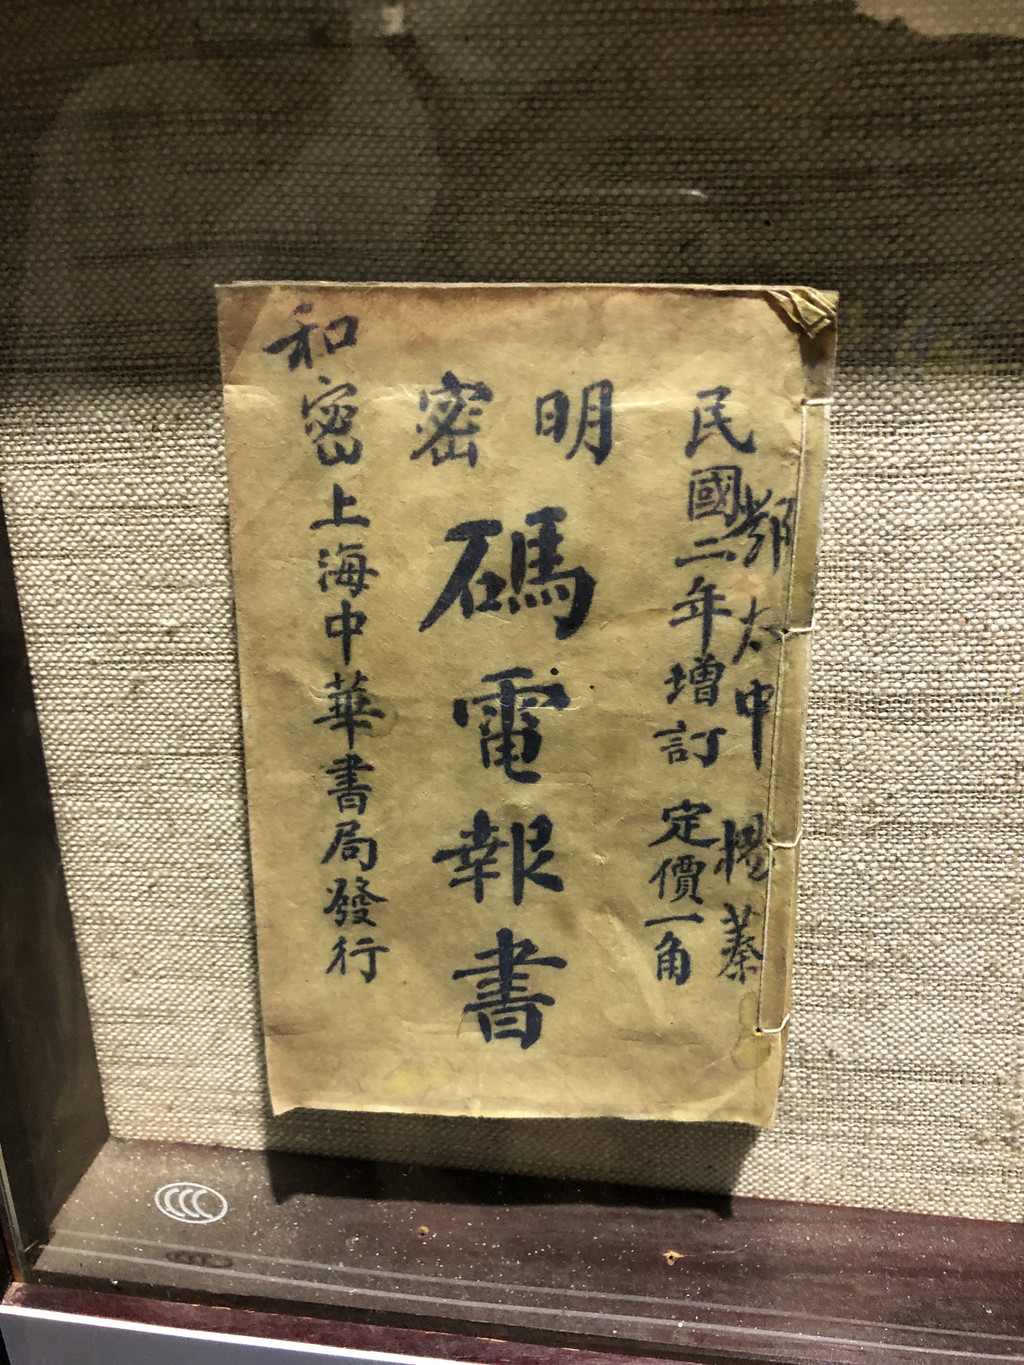 太中
民國二年增訂 定價一角
明密
碼電報書
和密上海中華書局發行